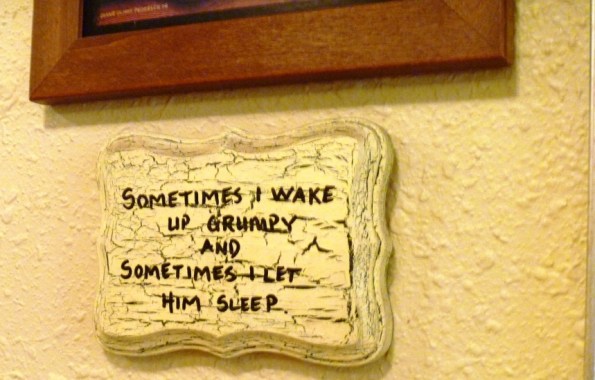 SOMETIMES I WAKE
UP GRUMPY
AND
SOMETIMES I LET
HIM SLEEP.